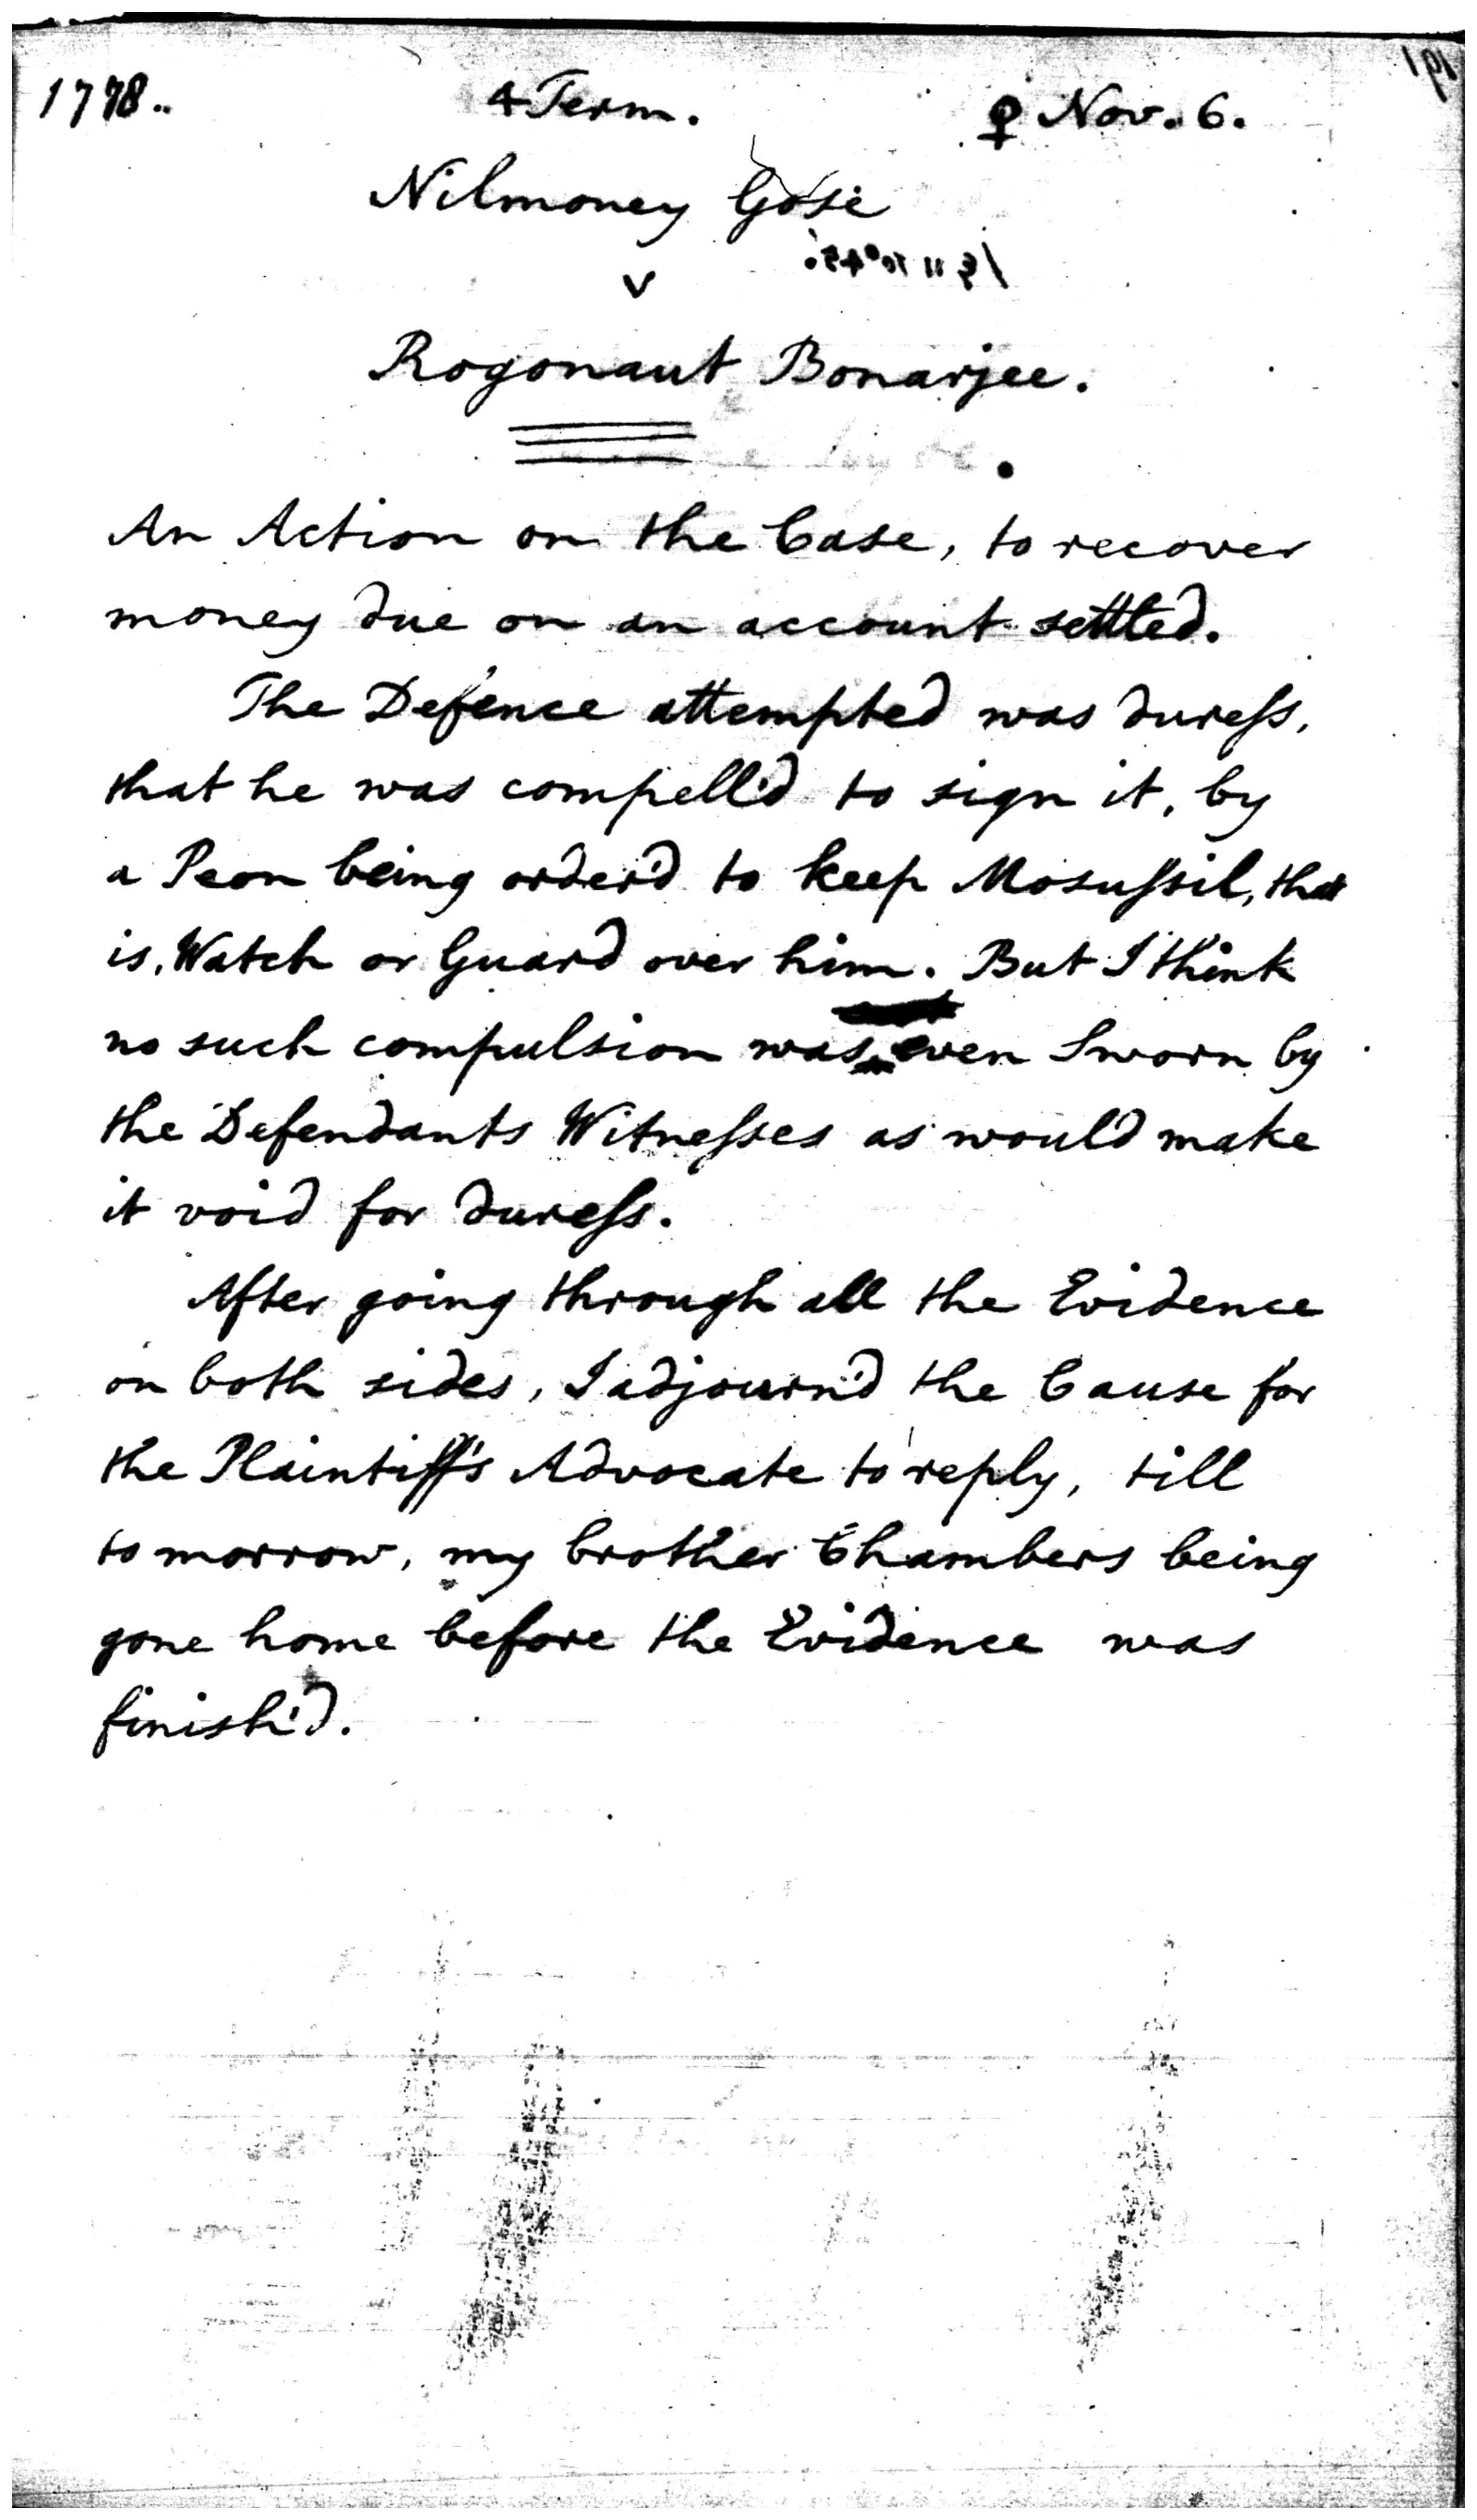 1778. 4 Term. ♀ Nov. 6.
Nilmoney Gose
v
Rogonaut Bonarjee.
An Action on the Case, to recover
money due on an account settled.
The Defence attempted was duress,
that he was compell'd to sign it, by
a Peon being order'd to keep Mosussil, that
is, Watch or Guard over him. But I think
no such compulsion was even Sworn by
the Defendants Witnesses as would make
it void for duress.
After going through all the Evidence
on both sides, I adjourn'd the Cause for
the Plaintiff's Advocate to reply, till
tomorrow, my brother Chambers being
gone home before the Evidence was
finish'd.